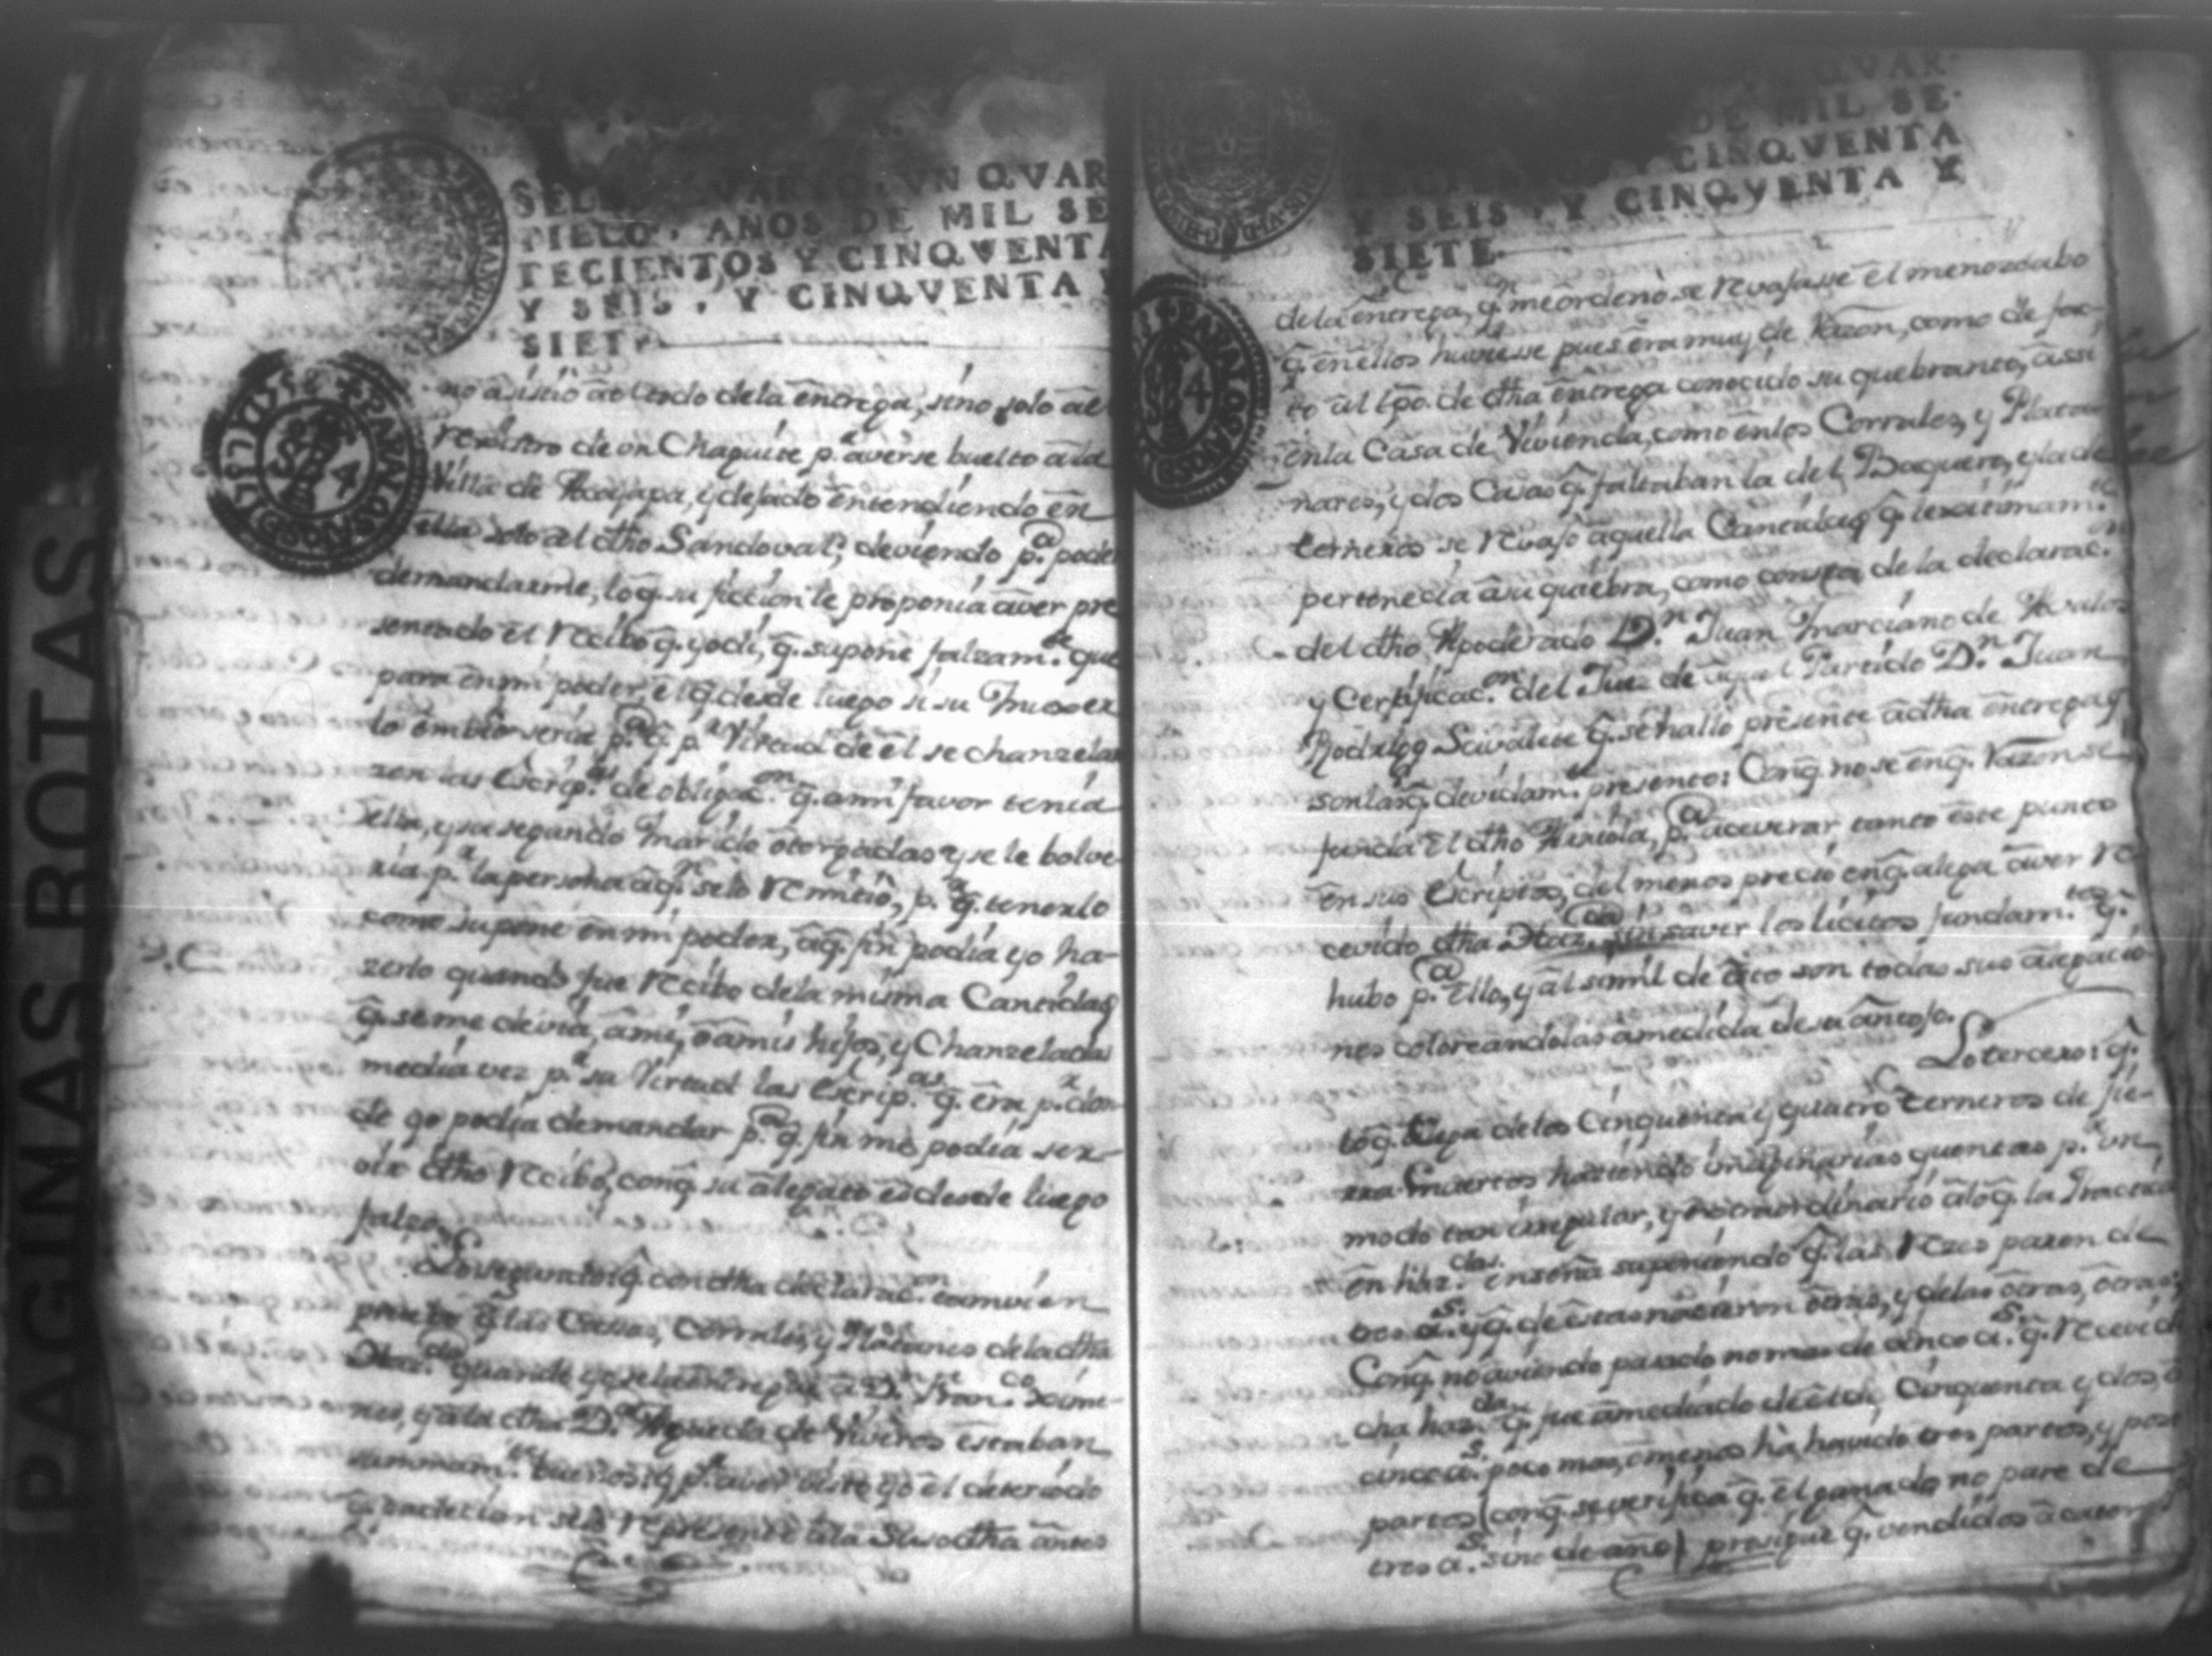 PAGINAS ROTAS
SELLO QVARTO, VN QVAR
TILLO, AÑOS DE MIL SE
TECIENTOS Y CINQVENTA
Y SEIS, Y CINQVENTA Y
SIETE
no asistió ao todo dela entrega, sino solo al
rexistro de un Chaguite p.r averse buelto ala
Villa de Acoyapa, y dejado entendiendo en
ella solo al dho Sandoval; deviendo p.a poder
demandarme, lo q̃. su ficcion le proponia aver pre
sentado el recibo q̃. yo di, q̃. supone falzam.te que
para en mi poder, el q̃. desde luego si su
lo embio seria p.a q̃. p.r Virtud de el se chanzelas
zen las Escrip.as de obligac.on q̃. a mi favor tenia
ella, y su segundo Marido otorgadas y se le bolve-
ria p.r la persona a q̃.n selo remitió, p.a q̃. tenerlo
como supone en mi poder, a q̃. fin podia yo ha-
zerlo quando fue recibo dela misma Cantidad
q̃. se me devia, a mi, o a mis hijos, y Chanzeladas
media vez p.r su Virtud las Escrip.as q̃. era p.r don-
de yo podia demandar p.a q̃. fin me podia ser-
vir dho recibo, con q̃. su alegato es desde luego
falzo.
Lo segundo: q̃. con dha declarac.on tamvien
pruebo q̃. las Casas, Corrales, y Platanares dela dha
Haz.da quando yo se la entregué a D.n Fran.co Xime-
nes, y ala dha D.a Agueda de Viveros estaban
summam.te buenos: y p.r aver visto yo el deterioro
q̃. padecian selo represente ala Susodha antes
QVAR
DE MIL SE-
TECIENTOS Y CINQVENTA
Y SEIS, Y CINQVENTA Y
SIETE
dela entrega, q.n me ordenó se revajasse el menoscabo
q̃. en ellos huviesse pues era muy de Razon, como de fac-
to al tpo. de dha entrega conocido su quebranto, assi
en la Casa de Vivienda, como en los Corrales, y Plata
nares, y dos Casas q̃. faltaban la del Baquero, y la de
terneros se revajó aquella Cantidad q̃. lexitimam.te
pertenecia a su quiebra, como consta de la declarac.on
del dho Apoderado D.n Juan Marciano de Avalos
y Certificac.on del Juez de aquel Partido D.n Juan
Rodrig.z q̃. se halló presente a dha entrega q̃.
son las q̃. devidam.te presento: Con q̃. no se en q̃. razon se
funda el dho p.a aceverar tanto este punto
en sus Escriptos, del menos precio en q̃. alega aver re
cevido dha Haz.da, sin saver los licitos fundam.tos q̃.
hubo p.a Ello, y al simil de esto son todas sus alegacio
nes coloreandolas a medida de su antojo.
Lo tercero: q̃.
lo q̃. alega delos Cinquenta y quatro terneros de fie-
rra muertos haziendo imaginarias quentas p.r un
modo tan irregular, y extraordinario a lo q̃. la Practica
en haz.das enseña suponiendo q̃. las Rezes paren de
tres a.s y q̃. de estas nacieron otras, y delas otras, otras:
Con q̃. no aviendo pasado no mas de cinco a.s q̃. recevi di-
cha haz.da q̃. fue a mediado de el de Cinquenta y dos, a
cinco a.s poco mas, o menos ha havido tres partos, y
partos (con q̃. se verifica q̃. el ganado no pare de
tres a.s sino de año) prosigue q̃. vendidos a